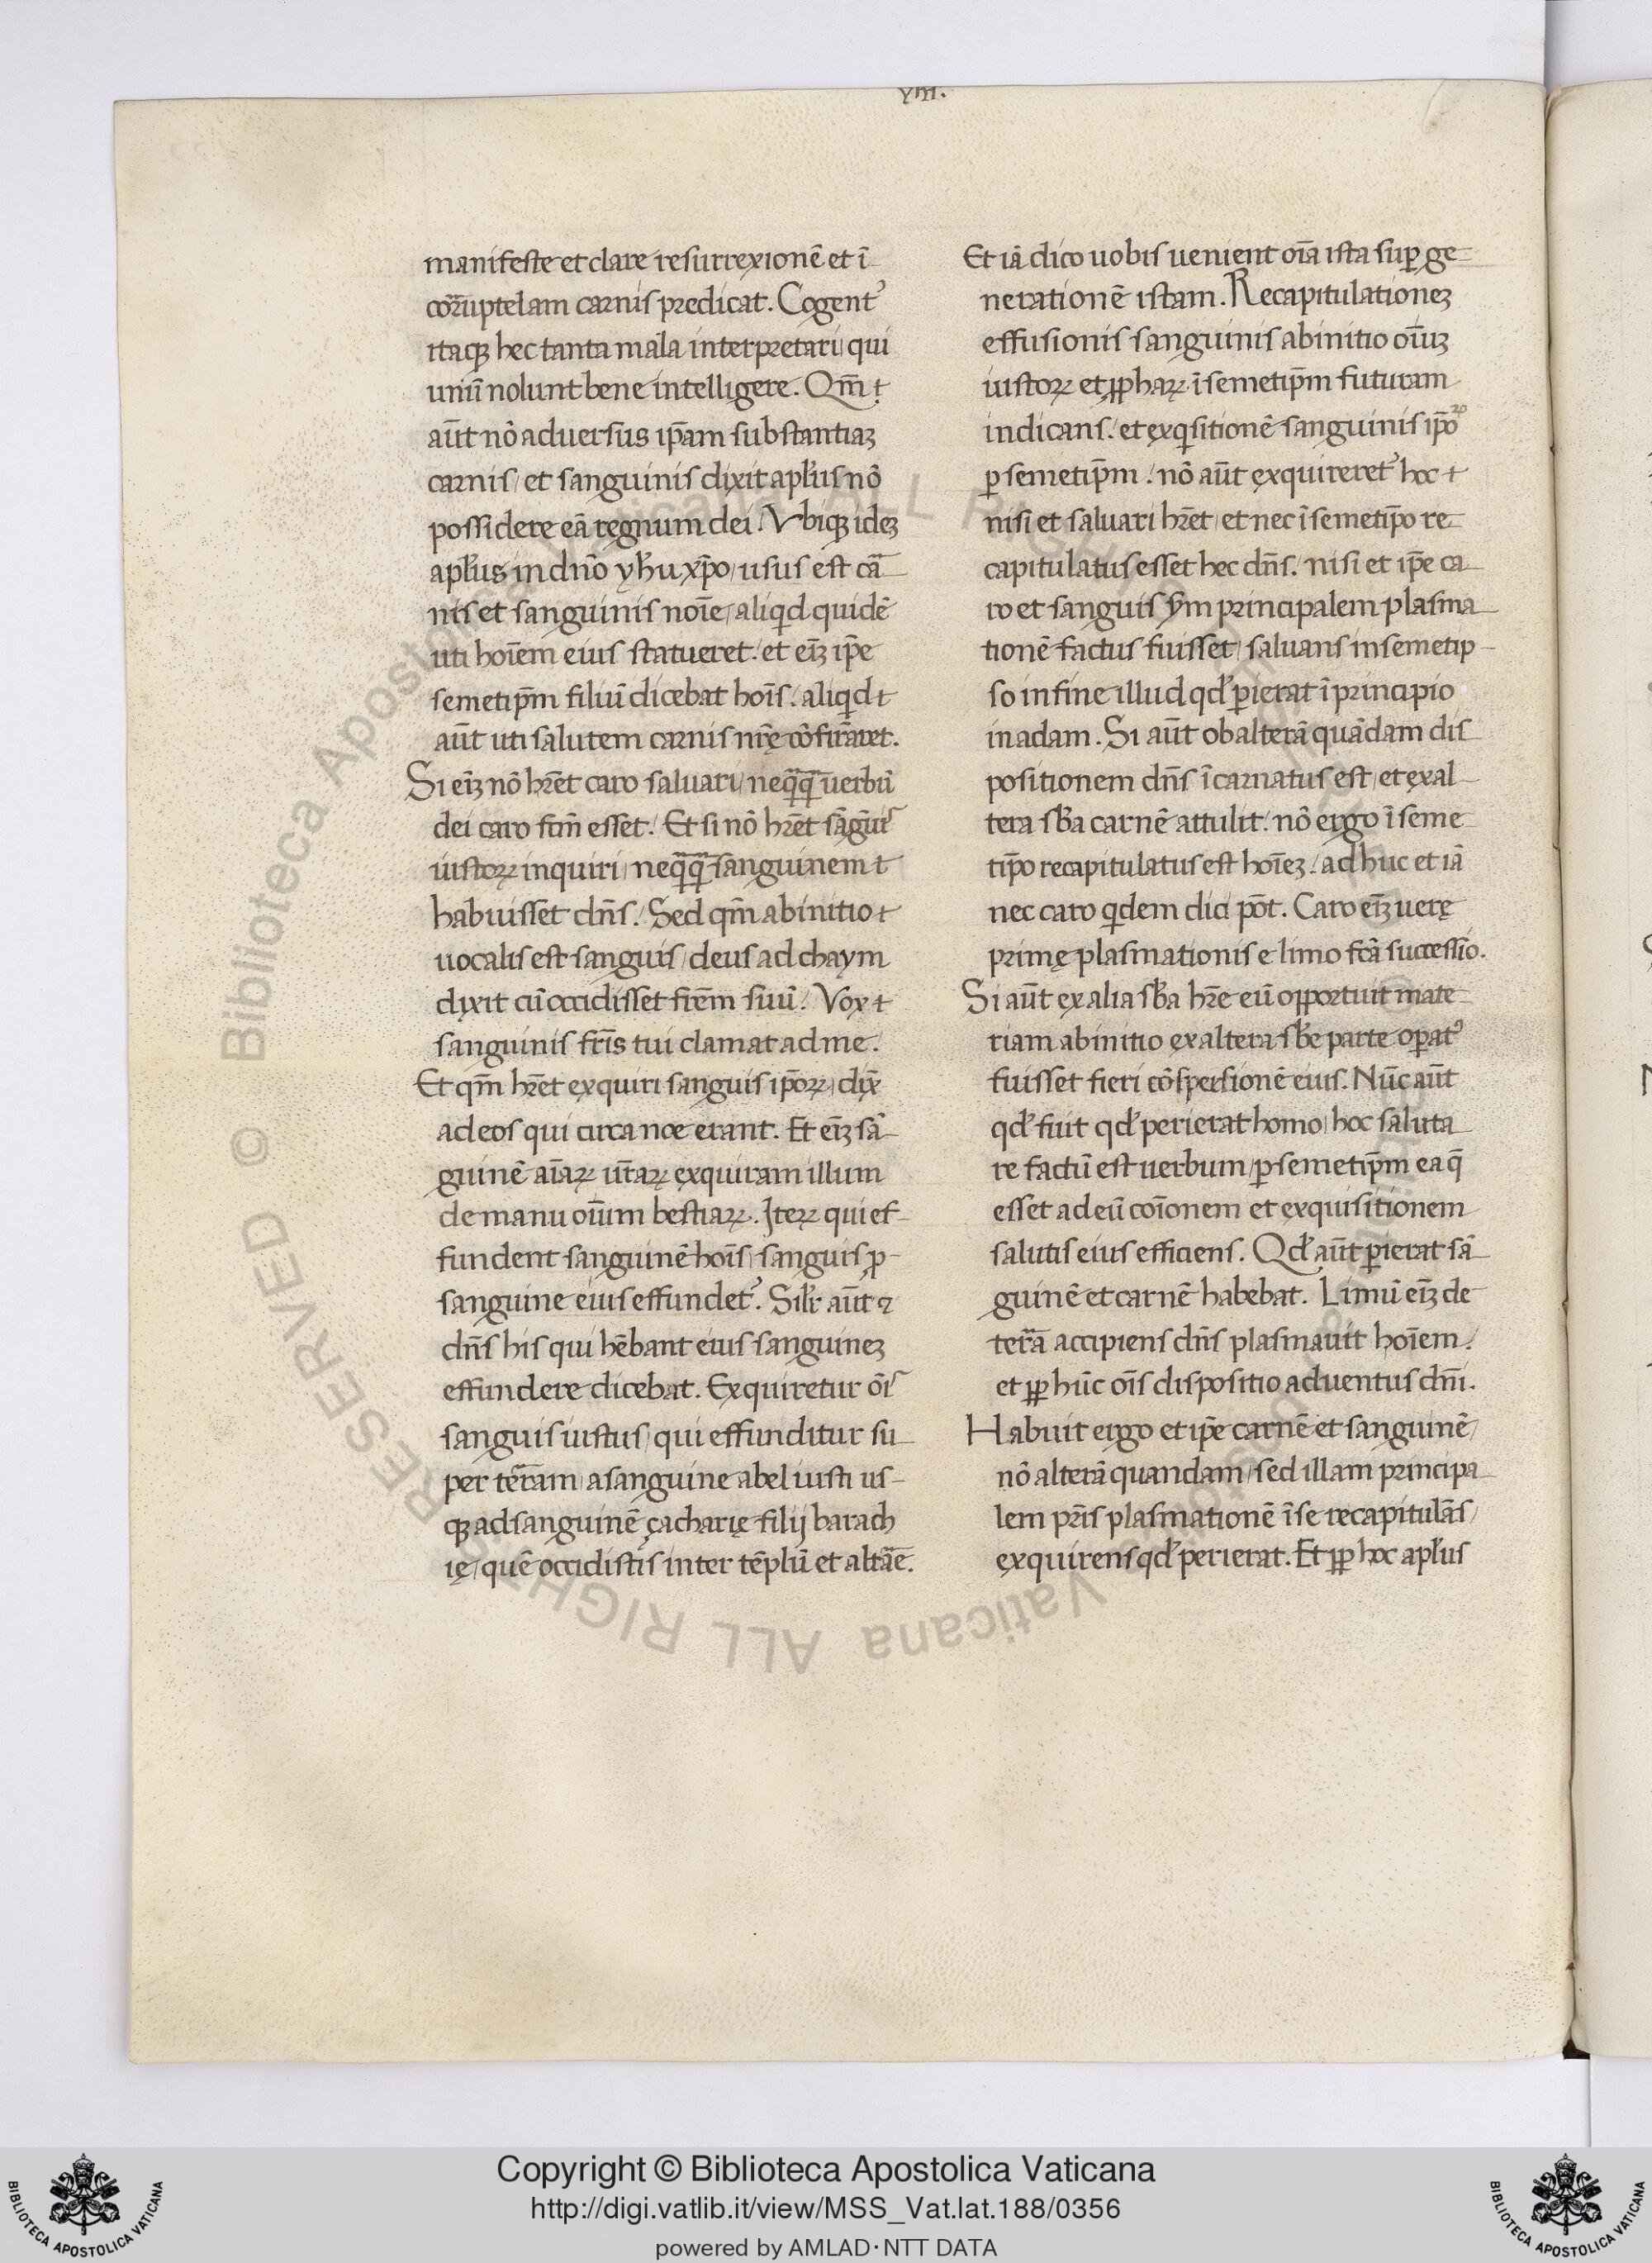 ym.
manifeste et clare resurrexionē et ī
cōrruptelam carnis predicat. Cogent᷒
itaqꝫ hec tanta mala interpretari/ qui
unū nolunt bene intelligere. Qm̄ t
aūt nō aduersus ip̄am substantiaꝫ
carnis/ et sanguinis dixit apl'us nō
possidere eā regnum dei/ Vbiqꝫ ideꝫ
apl'us in dn̄o yh̄u xp̄o/ usus est cā
nis et sanguinis noīe/ aliqd quidē
uti hoīem eius statueret/ et eīꝫ ip̄e
semetip̄m filiū dicebat hoīs/ aliqd t
aūt uti salutem carnis nr̄ę cōfirāret.
Si eīꝫ nō hr̄et caro saluari/ neq̄q̄ uerbū
dei caro fcm̄ esset/ Et si nō hr̄et sāgūis
iustoꝝ inquiri/ neq̄q̄ sanguinem t
habuisset dn̄s/ Sed qm̄ ab initio t
uocalis est sanguis/ deus ad chaym
dixit cū occidisset fr̄em suū/ Vox t
sanguinis fr̄is tui clamat ad me.
Et qm̄ hr̄et exquiri sanguis ip̄oꝝ/ dix̄
ad eos qui circa noe erant. Et eīꝫ sā
guinē aīaꝝ ur̄aꝝ exquiram illum
de manu oīum bestiaꝝ. Iteꝝ qui ef-
fundent sanguinē hoīs/ sanguis ꝓ-
sanguine eius effundet᷒. Sil'r aūt ⁊
dn̄s his qui hēbant eius sanguineꝫ
effundere dicebat. Exquiretur ōis
sanguis iustus/ qui effunditur su
per terram/ a sanguine abel iusti us-
qꝫ ad sanguinē çacharię filij barach
ię/ quē occidistis inter tēplū et altāe.
Et iā dico uobis uenient oīa ista suꝑ ge-
nerationē istam. Recapitulationeꝫ
effusionis sanguinis ab initio oīuꝫ
iustoꝝ et ꝓphaꝝ ī semetip̄m futuram
indicans/ et exqisitionē sanguinis ip̄oꝝ
ꝑ semetip̄m/ nō aūt exquireret᷒ hoc t
nisi et saluari hr̄et/ et nec ī semetip̄o re-
capitulatus esset hec dn̄s/ nisi et ip̄e ca-
ro et sanguis ym principalem plasma
tionē factus fuisset/ saluans in semetip-
so in fine illud qd' ꝑierat ī principio
in adam. Si aūt ob alterā quādam dis
positionem dn̄s īcarnatus est/ et ex al-
tera sb̄a carnē attulit/ nō ergo ī seme-
tip̄o recapitulatus est hoīeꝫ/ adhuc et iā
nec caro qdem dici pōt. Caro eīꝫ uerę
primę plasmationis e limo fcā successio.
Si aūt ex alia sb̄a hr̄e eū opportuit mate-
riam ab initio ex altera sb̄e parte oꝑat᷒
fuisset fieri cōspersionē eius. Nūc aūt
qd' fuit qd' perierat homo/ hoc saluta
re factū est uerbum/ ꝑ semetip̄m ea q̄
esset ad eū coīonem et exquisitionem
salutis eius efficiens. Qd' aūt ꝑierat sā
guinē et carnē habebat. Limū eīꝫ de
terrā accipiens dn̄s plasmauit hoīem/
et ꝓp hūc oīs dispositio aduentus dn̄i.
Habuit ergo et ip̄e carnē et sanguinē/
nō alterā quandam/ sed illam principa
lem pr̄is plasmationē ī se recapitulās/
exquirens qd' perierat. Et ꝓp hoc apl'us
© Biblioteca Apostolica Vaticana ALL RIGHTS RESERVED
Copyright © Biblioteca Apostolica Vaticana
http://digi.vatlib.it/view/MSS_Vat.lat.188/0356
powered by AMLAD·NTT DATA
BIBLIOTECA APOSTOLICA VATICANA
BIBLIOTECA APOSTOLICA VATICANA